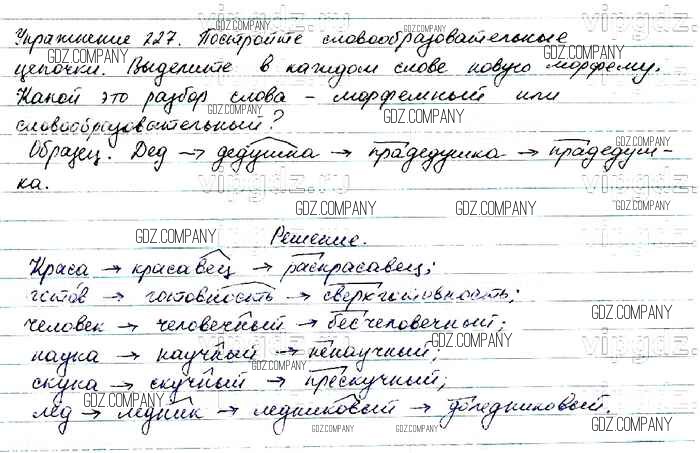 Упражнение 227. Постройте словообразовательные
цепочки. Выделите в каждом слове новую морфему.
Какой это разбор слова – морфемный или
словообразовательный?
Образец. Дед → дедушка → прадедушка → прадедуш-
ка.
Решение.
Краса → красавец → раскрасавец;
готов → готовность → сверхготовность;
человек → человечный → бесчеловечный;
наука → научный → ненаучный;
скука → скучный → прескучный;
лёд → ледник → ледниковый → доледниковый.
vipgdz.ru
GDZ.COMPANY